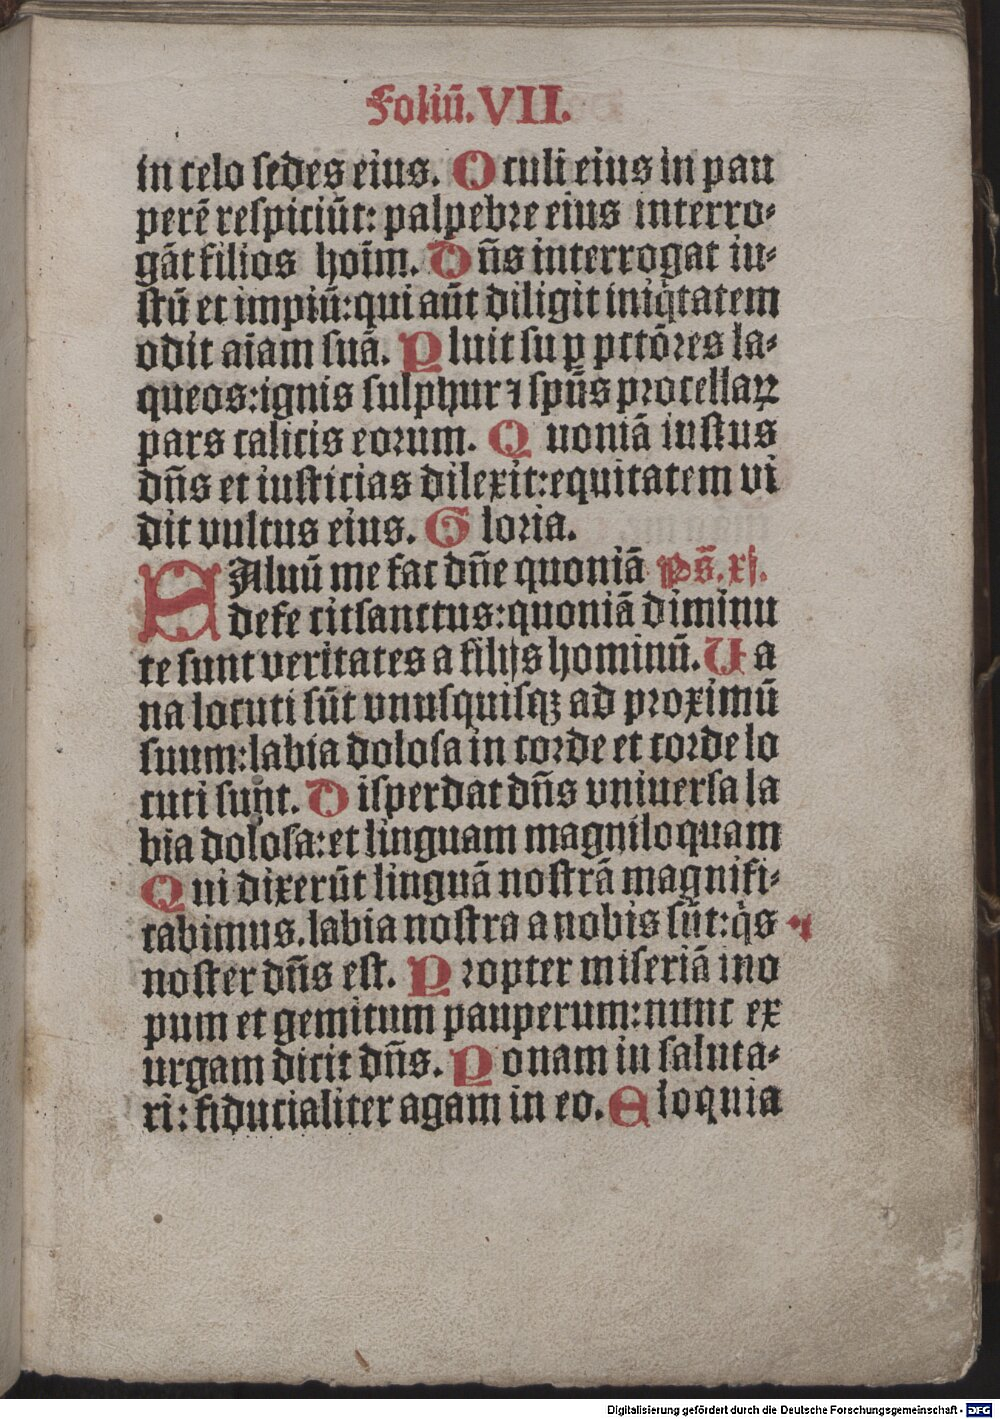 Foliū. VII.
in celo sedes eius. Oculi eius in pau
perē respiciūt: palpebre eius interro⸗
gāt filios hoīm. Dn̄s interrogat iu⸗
stū et impiū: qui aūt diligit iniq̄tatem
odit aīam suā. Pluit suꝑ pctōres la⸗
queos: ignis sulphur ⁊ sp̄us procellaꝝ
pars calicis eorum. Quoniā iustus
dn̄s et iusticias dilexit: equitatem vi
dit vultus eius. Gloria.
SAluū me fac dn̄e quoniā Ps̄. xj.
defecit sanctus: quoniā diminu
te sunt veritates a filijs hominū. Ua
na locuti sūt vnusquisqꝫ ad proximū
suum: labia dolosa in corde et corde lo
cuti sunt. Disperdat dn̄s vniuersa la
bia dolosa: et linguam magniloquam
Qui dixerūt linguā nostrā magnifi⸗
cabimus. labia nostra a nobis sūt: q̇s
noster dn̄s est. Propter miseriā ino
pum et gemitum pauperum: nunc ex
urgam dicit dn̄s. Ponam in saluta⸗
ri: fiducialiter agam in eo. Eloquia
Digitalisierung gefördert durch die Deutsche Forschungsgemeinschaft - DFG